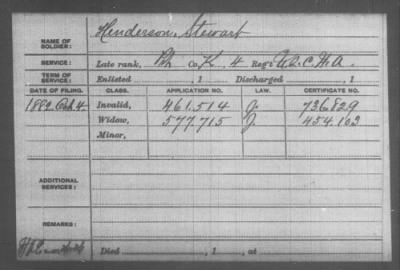 NAME OF SOLDIER: Henderson, Stewart
SERVICE: Late rank, Co. K, 4 Reg't U.S.C.H.A.
TERM OF SERVICE: Enlisted , 1 Discharged , 1
DATE OF FILING. CLASS. APPLICATION NO. LAW. CERTIFICATE NO.
Invalid, 461.514 J. 736.829
Widow, 577.715 J 454.103
Minor,
ADDITIONAL SERVICES:
REMARKS:
Died , 1 , at